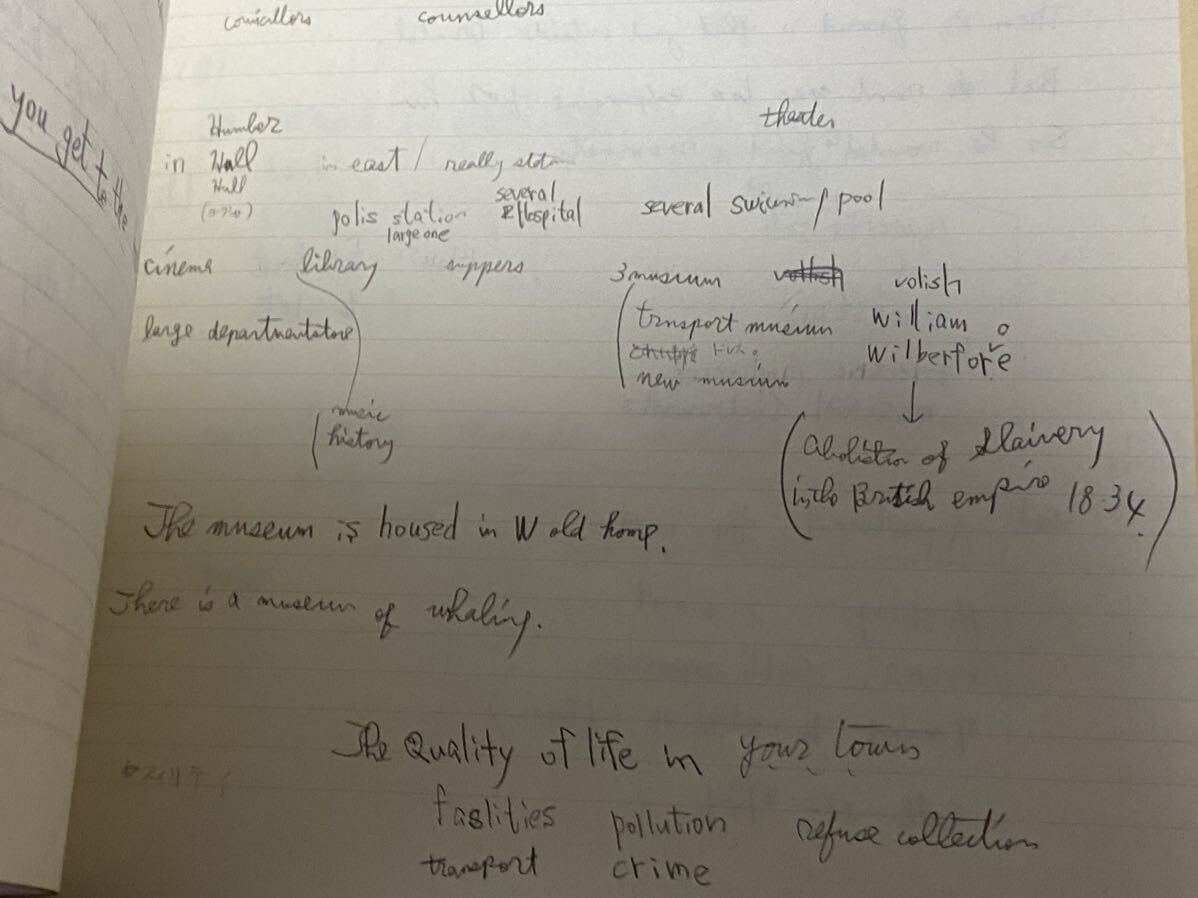 councillors counsellors
you get to the
Humber theater
in Hull in east / really
Hull
polis station several Hospital several swimming pool
large one
cinema library 3 museum volish
large departmentstore transport museum William
Wilberfore
new museum
music
history
abolition of Slaivery
in the British empire 1834.
The museum is housed in W old home.
There is a museum of whaling.
The Quality of life in your town
faslities pollution refuse collection
transport crime